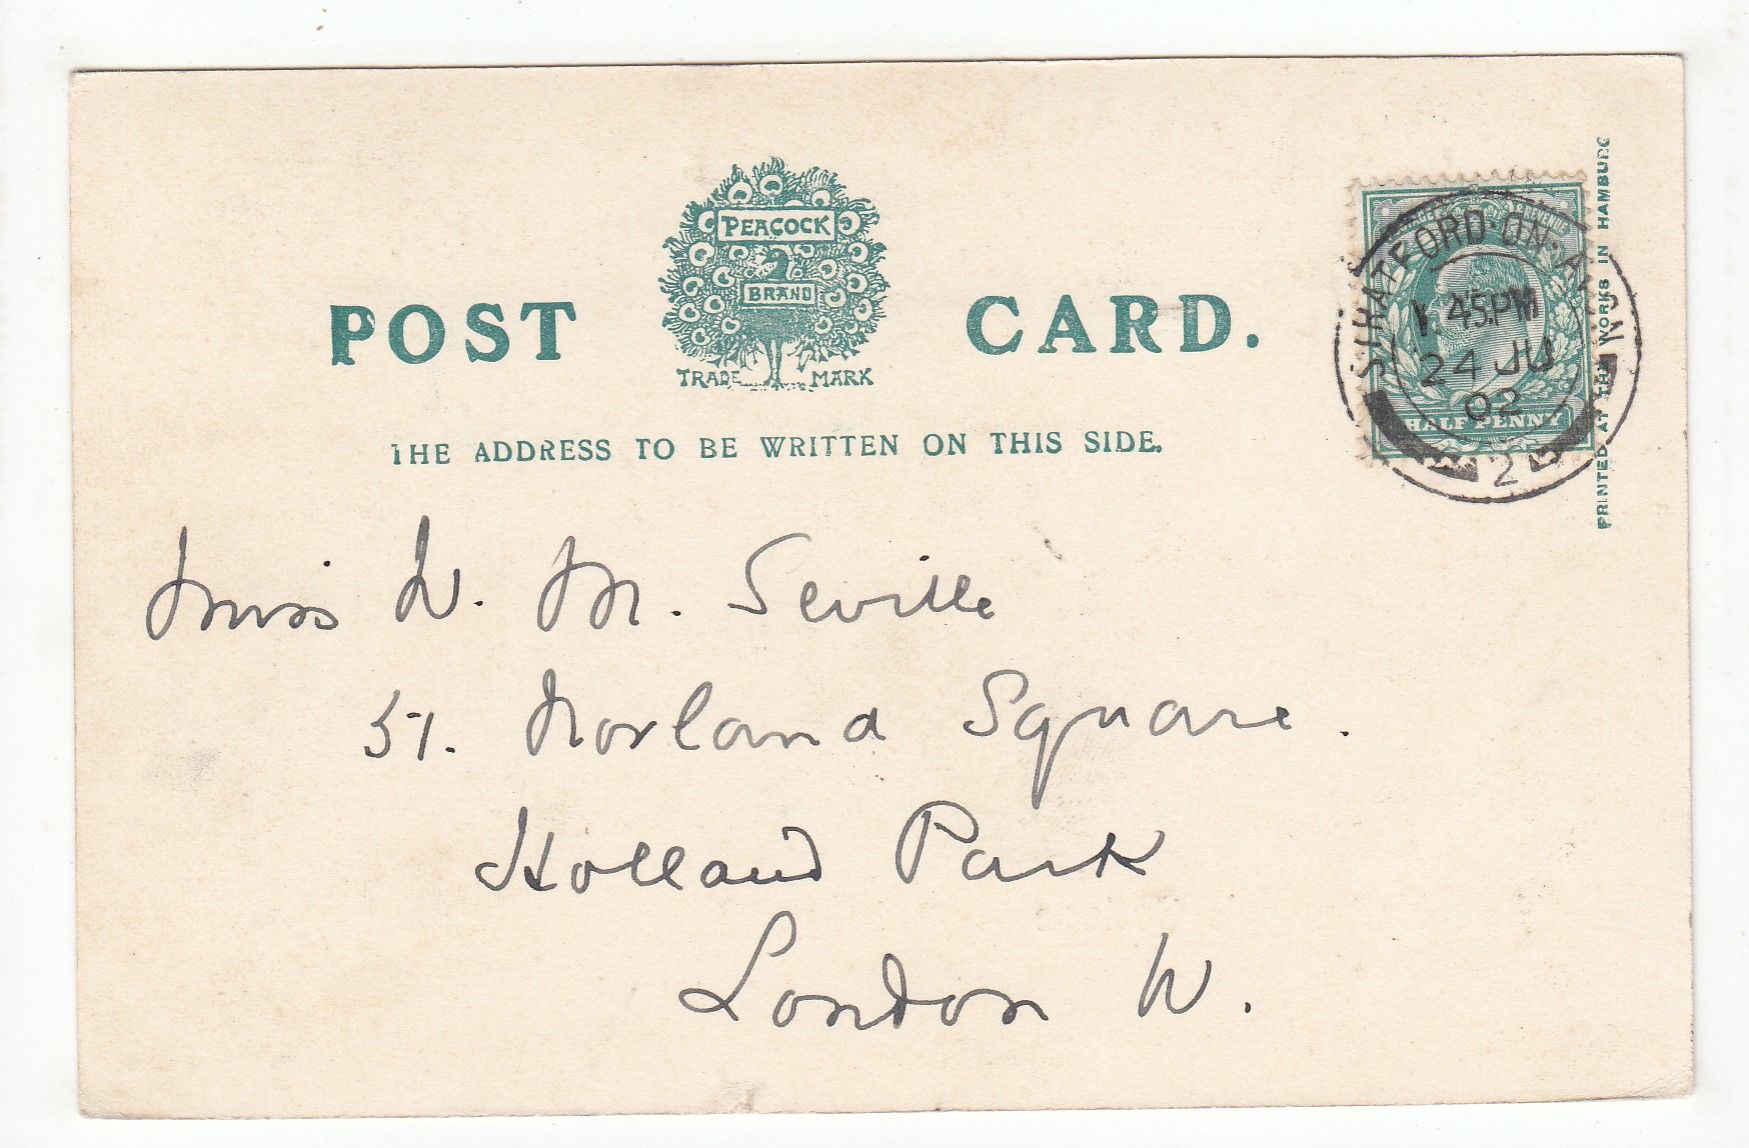 PEACOCK
BRAND
POST CARD.
TRADE MARK
THE ADDRESS TO BE WRITTEN ON THIS SIDE.
STRATFORD·ON·AVON
1.45PM
24 JU
02
2
HALF PENNY
PRINTED AT THE WORKS IN HAMBURG
Miss W. M. Seville
51. Norland Square.
Holland Park
London W.